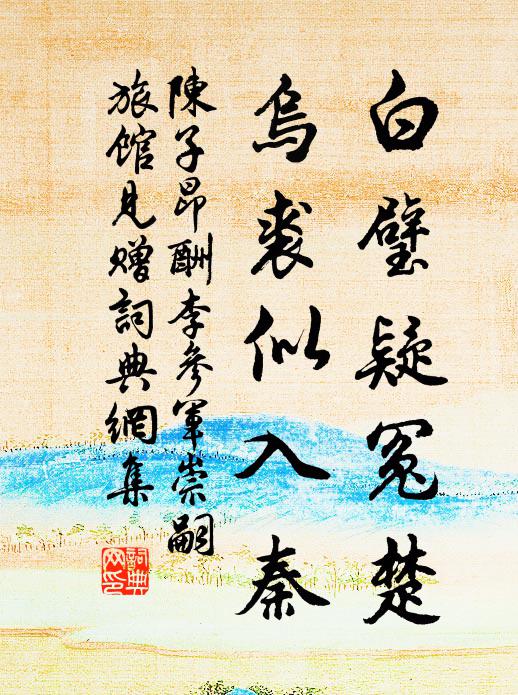 白璧疑冤楚
烏裘似入秦
陳子昂酬李參軍崇嗣
旅館見贈詞典網集
詞典
网印